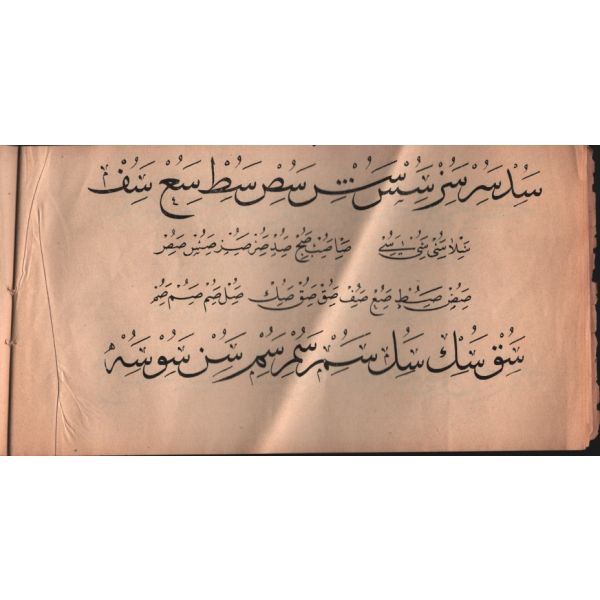 سد سر سز سس سش سص سط سع سف
سلا سى سى سى صا صب صج صد صر صر صس صر
صص صط صع صف صق صق صك صل صم صم صم
سق سك سل سم سم سم سن سو سه